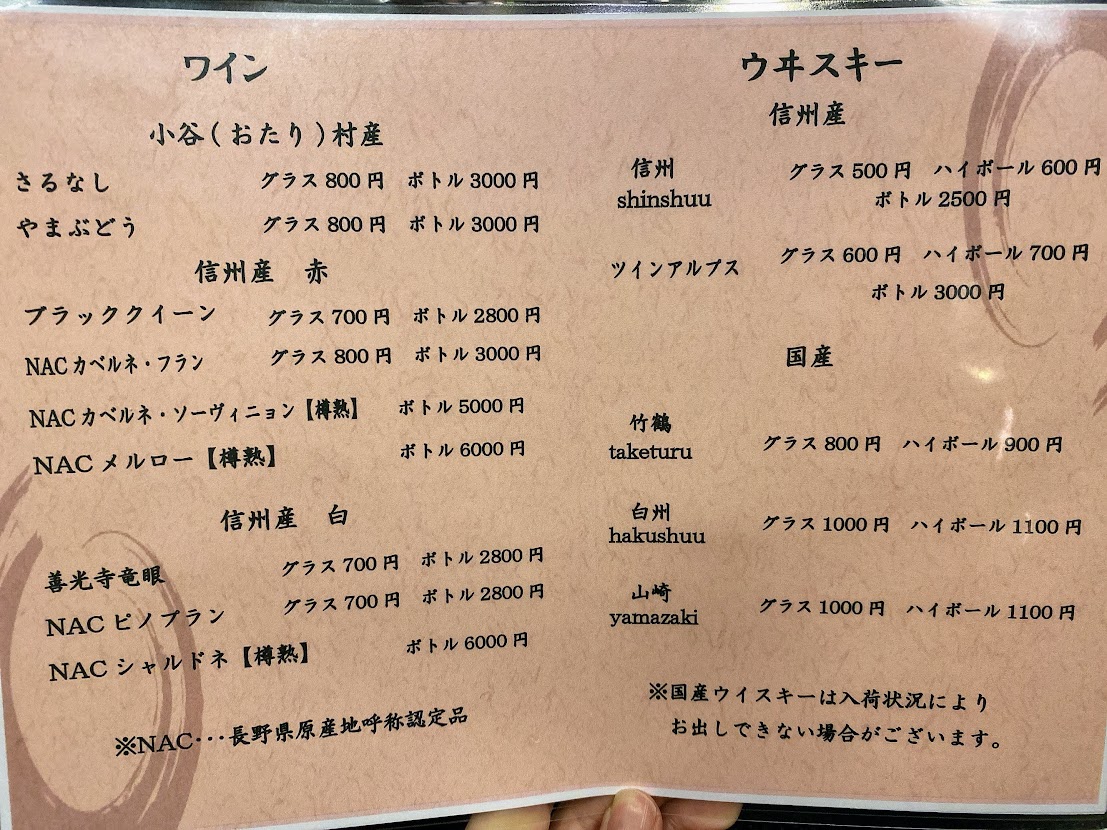 ワイン
小谷(おたり)村産
さるなし グラス800円 ボトル3000円
やまぶどう グラス800円 ボトル3000円
信州産 赤
ブラッククイーン グラス700円 ボトル2800円
NACカベルネ・フラン グラス800円 ボトル3000円
NACカベルネ・ソーヴィニョン【樽熟】 ボトル5000円
NACメルロー【樽熟】 ボトル6000円
信州産 白
善光寺竜眼 グラス700円 ボトル2800円
NACピノブラン グラス700円 ボトル2800円
NACシャルドネ【樽熟】 ボトル6000円
※NAC・・・長野県原産地呼称認定品
ウヰスキー
信州産
信州 グラス500円 ハイボール600円
shinshuu ボトル2500円
ツインアルプス グラス600円 ハイボール700円
ボトル3000円
国産
竹鶴
taketuru グラス800円 ハイボール900円
白州
hakushuu グラス1000円 ハイボール1100円
山崎
yamazaki グラス1000円 ハイボール1100円
※国産ウイスキーは入荷状況により
お出しできない場合がございます。